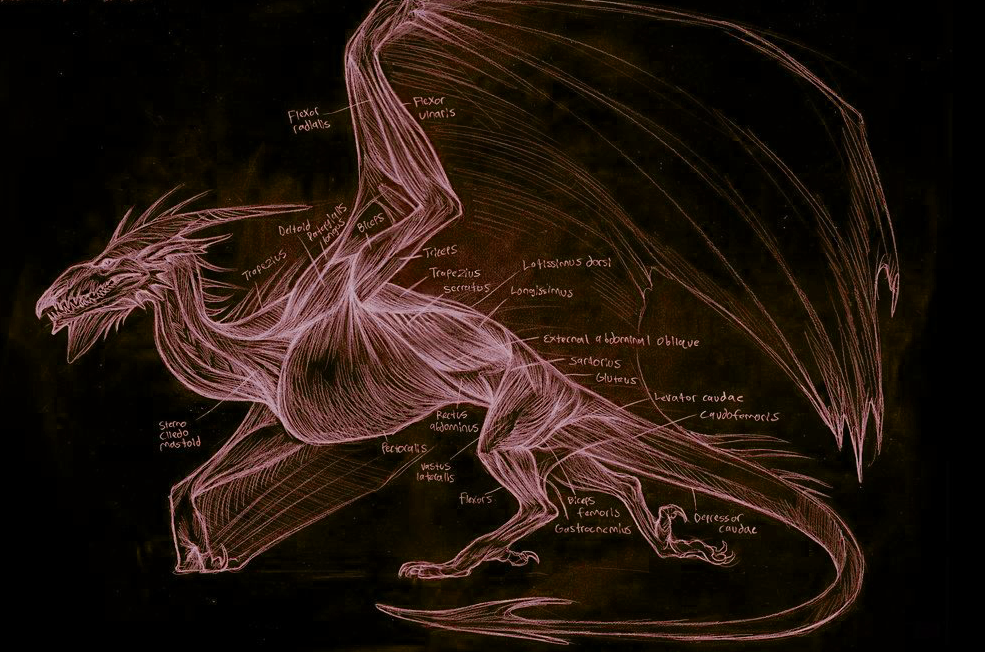 Flexor
radialis
Flexor
ulnaris
Deltoid
longus
Biceps
Trapezius
Triceps
Trapezius
Serratus
Latissimus dorsi
Longissimus
External abdominal oblique
Sartorius
Gluteus
Levator caudae
Caudofemoris
Rectus
abdominus
Sterno
mastoid
Pectoralis
Vastus
lateralis
flexors
Biceps
femoris
Gastrocnemius
Depressor
caudae